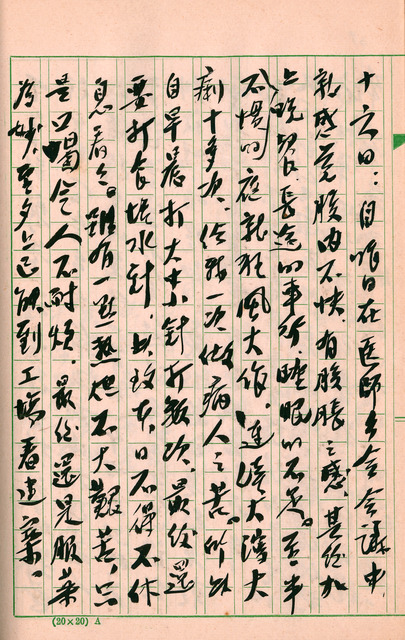 十六日：自昨日在医師公会会議中
就感覺腹内不快，有腹脹之感，其後加
上晚契氏長途的車行，睡眠的不足。至半
不慣的応就狂風大作，連瀉大瀉大
痢十多次，給我一次做病人之苦。所以
自早晨打大小針打数次，最後還
要打食塩水針，以致本日不得不休
息看々。雖有一点熱但不大艱苦，只
是口渴令人不耐煩，最後還是服藥
為妙，至夕上已能到工場看建築。
(20×20) A